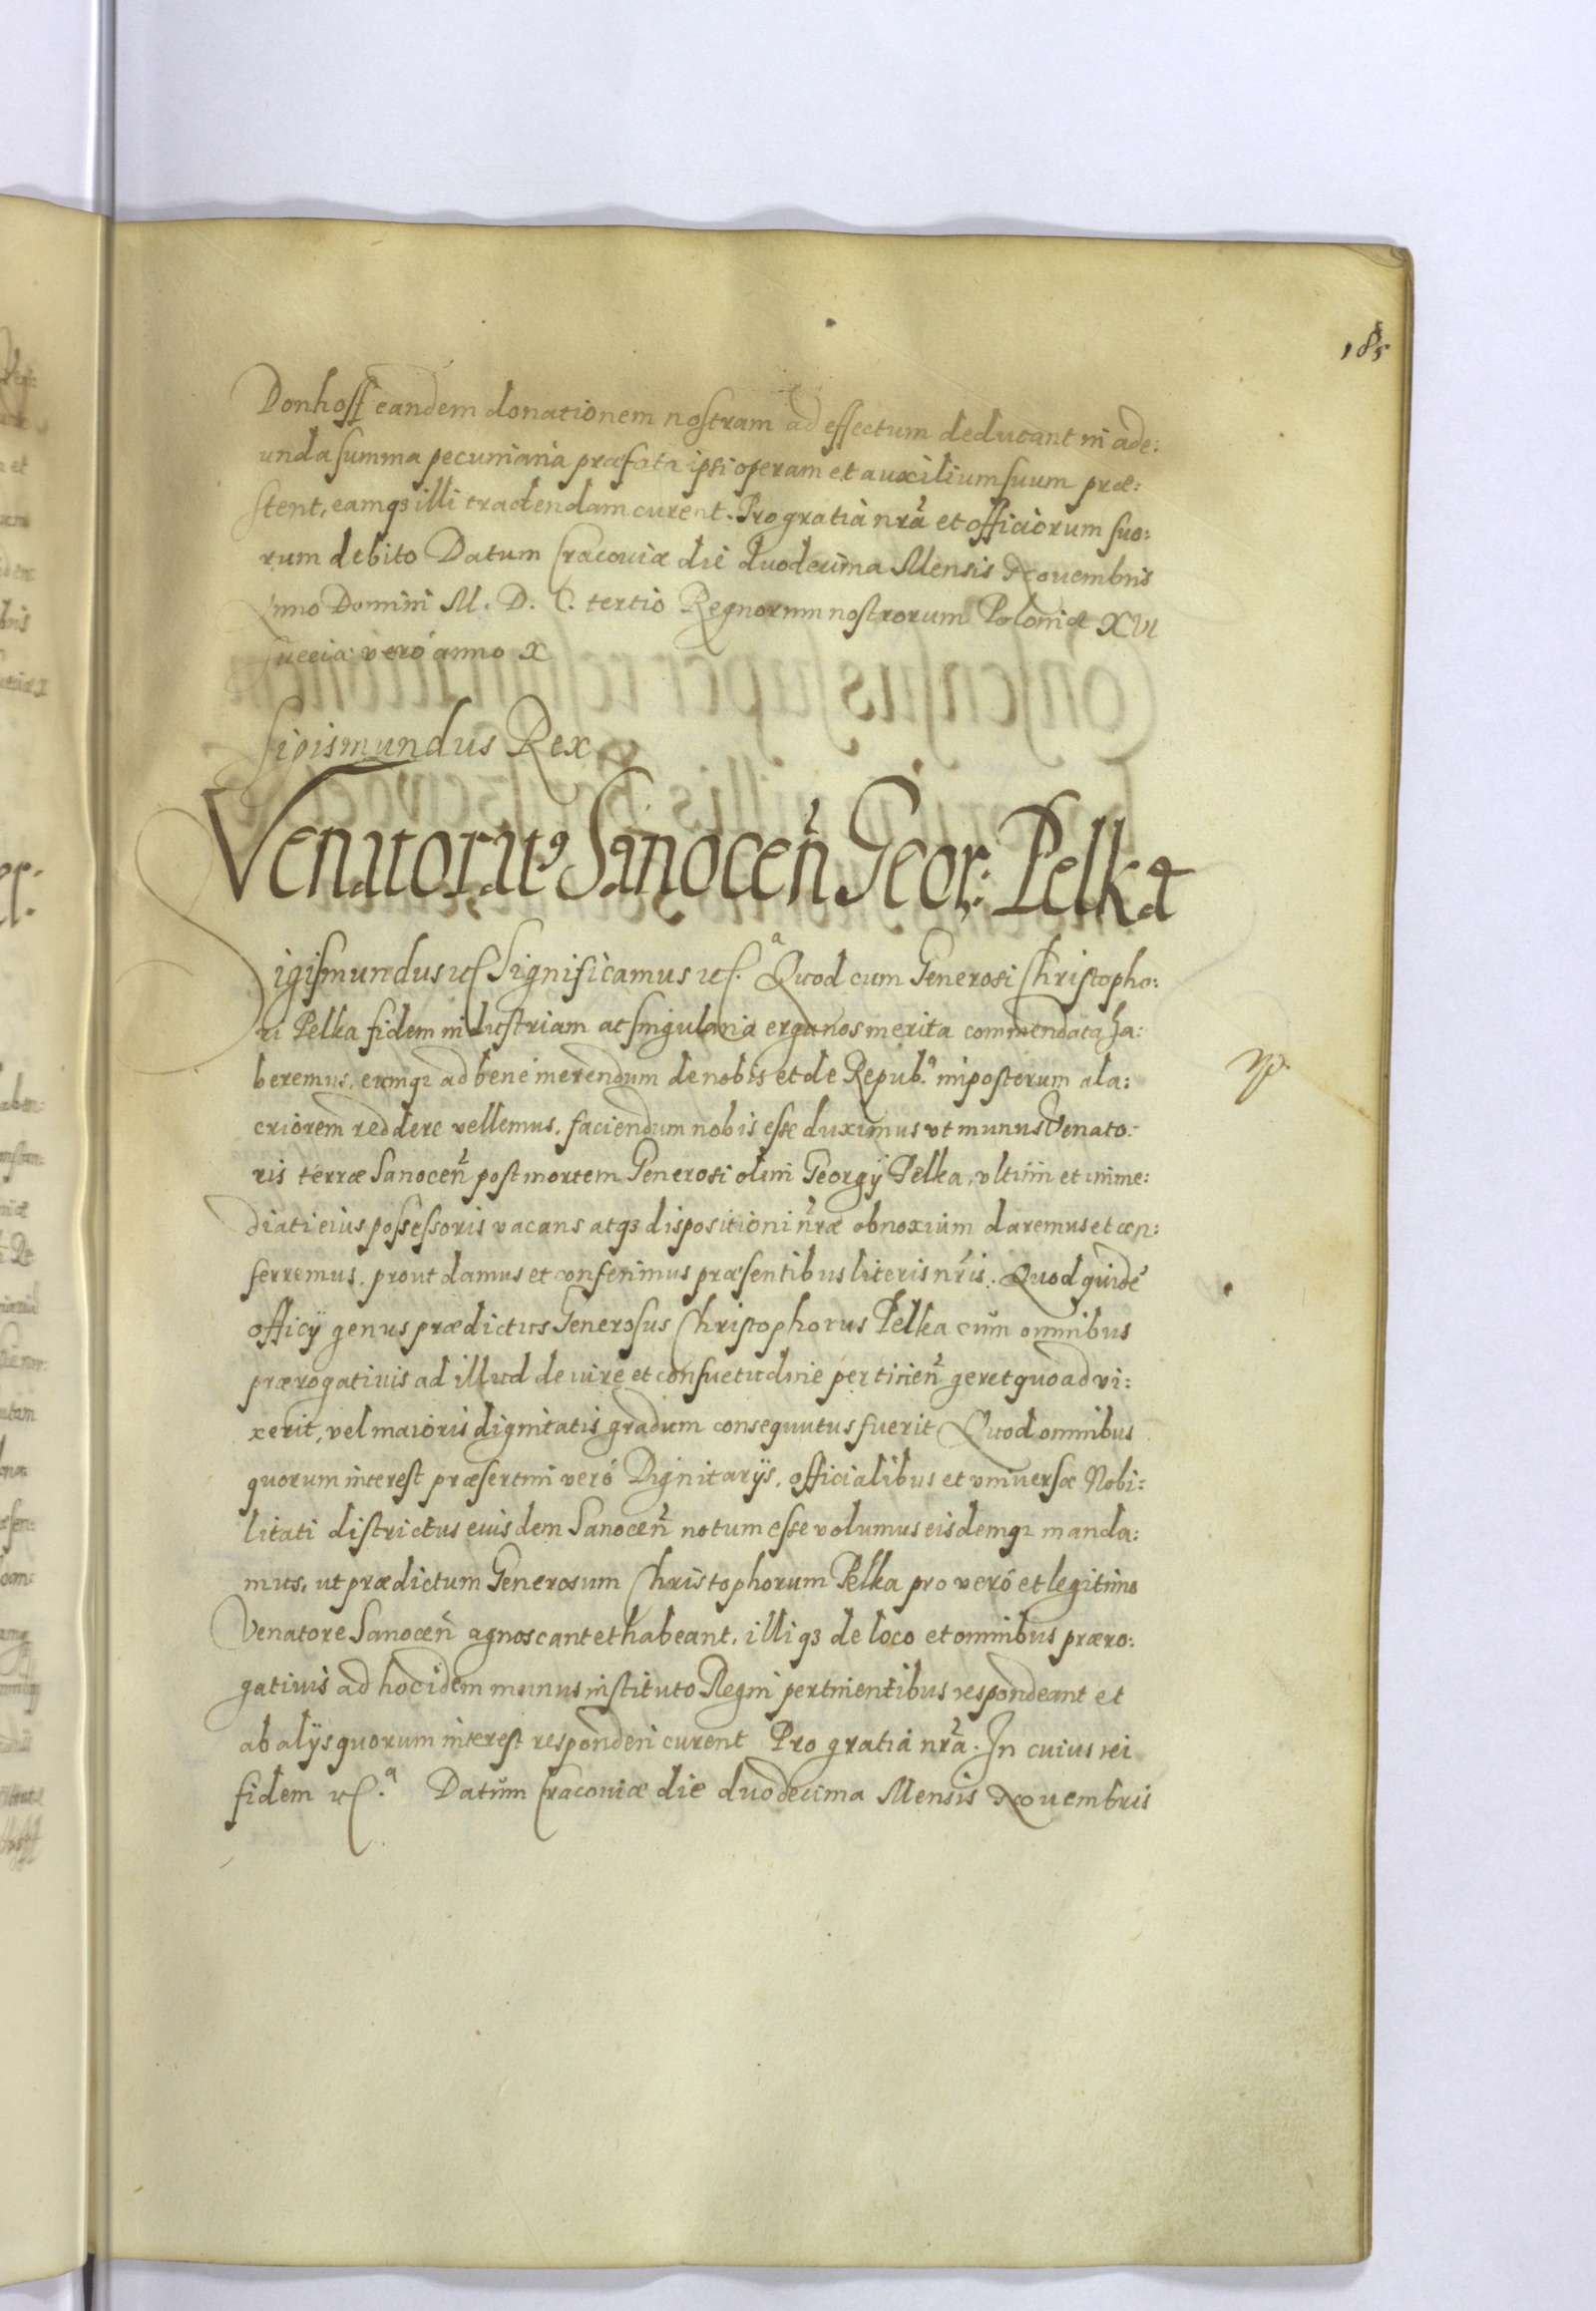 185
Donhoff eandem donationem nostram ad effectum deducant in ade:
unda summa pecuniaria præfata ipsi operam et auxilium suum præ:
stent, eamqꝫ illi tradendam curent. Pro gratia nrã et officiorum suo:
rum debito Datum Cracoviæ die duodecima Mensis Novembris
Anno Domini M. D. C. tertio Regnorum nostrorum Poloniæ XVI
Sueciæ veró anno X
Sigismundus Rex
Venatorat⁹ Sanoceñ Geor: Pelka
Sigismundus etc Significamus etc.ᵃ Quod cum Generosi Christopho:
ri Pelka fidem industriam ac singularia erga nos merita commendata ha:
beremus, eumqꝫ ad bene merendum de nobis et de Repub.ᵃ in posterum ala:
criorem reddere vellemus, faciendum nobis esse duximus vt munus Venato:
ris terræ Sanoceñ post mortem Generosi olim Georgÿ Pelka, vltimi et imme:
diati eius possessoris vacans atqꝫ dispositioni nr̃æ obnoxium daremus et con:
ferremus, prout damus et conferimus præsentibus literis nr̃is. Quod quidẽ
officÿ genus prædictus Generosus Christophorus Pelka cum omnibus
prærogativis ad illud de iure et consuetudine pertineñ geret quoad vi:
xerit, vel maioris dignitatis gradum consequutus fuerit Quod omnibus
quorum interest præsertim veró Dignitarÿs, officialibus et vniversæ Nobi:
litati districtus eiusdem Sanoceñ notum esse volumus eisdemqꝫ manda:
mus, ut prædictum Generosum Christophorum Pelka pro veró et legitimo
Venatore Sanoceñ agnoscant et habeant, illiqꝫ de loco et omnibus præro:
gativis ad hoc idem munus instituto Regni pertinentibus respondeant et
ab alÿs quorum interest responderi curent Pro gratia nrã. In cuius rei
fidem etc.ᵃ Datum Cracoviæ die duodecima Mensis Novembris